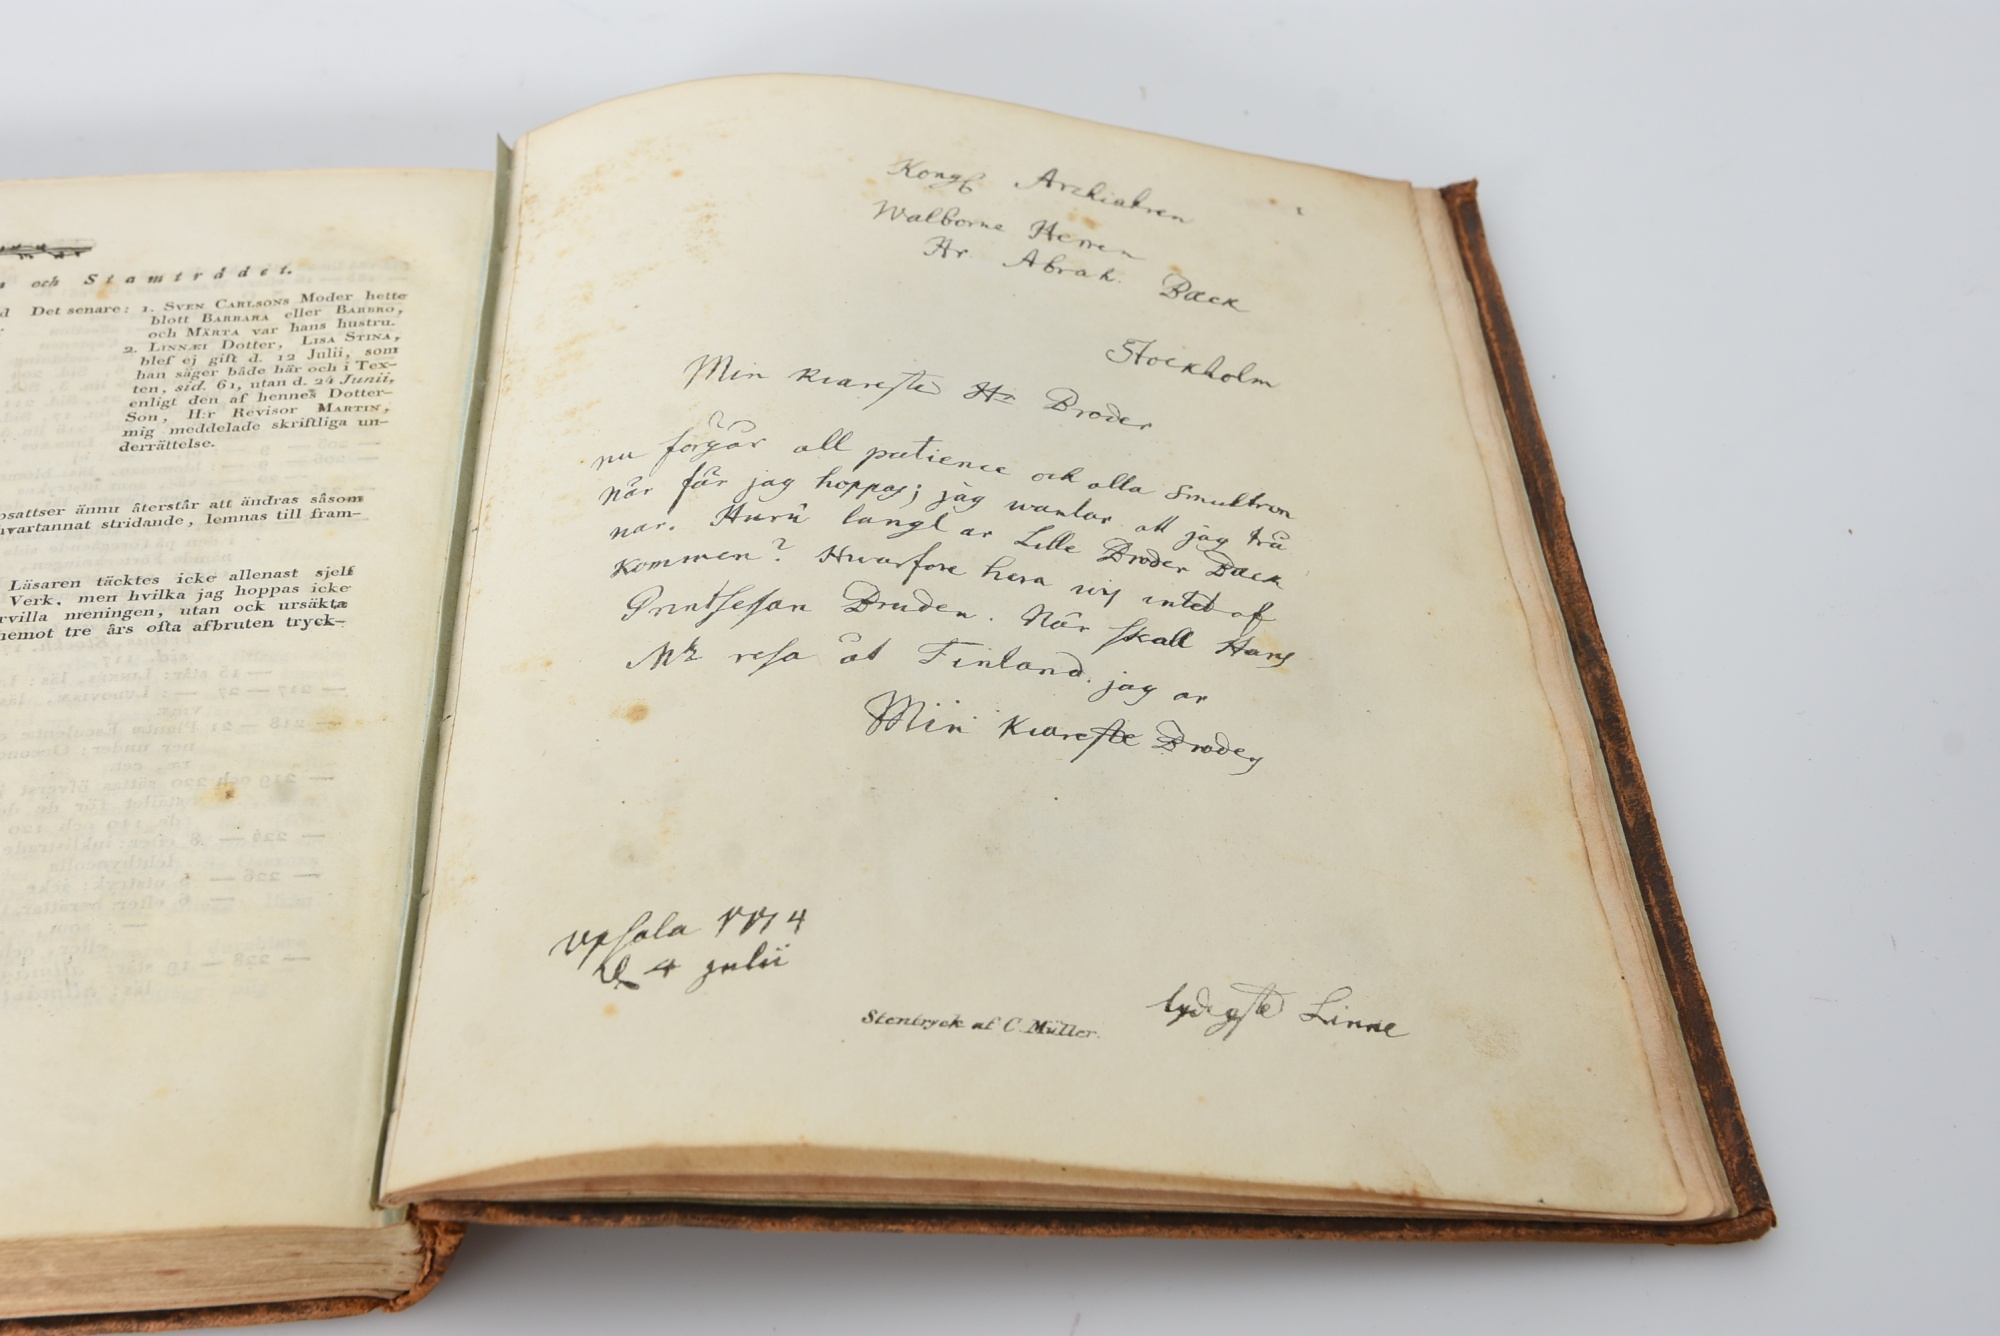 och Stamträdet.
d Det senare: 1. SVEN CARLSONS Moder hette
blott BARBARA eller BARBRO,
och MÄRTA var hans hustru.
2. LINNÆI Dotter, LISA STINA,
blef ej gift d. 12 Julii, som
han säger både här och i Tex-
ten, sid. 61, utan d. 24 Junii,
enligt den af hennes Dotter-
Son, H:r Revisor MARTIN,
mig meddelade skriftliga un-
derrättelse.
psattser ännu återstår att ändras såsom
hvartannat stridande, lemnas till fram-
Läsaren täcktes icke allenast sjelf
Verk, men hvilka jag hoppas icke
rvilla meningen, utan ock ursäkta
nemot tre års ofta afbruten tryck-
Kongl Archiatren
Walborne Herren
Hr. Abrah. Bäck
Stockholm
Min kiäreste Hr Broder
nu förgår all patience och alla Smultron
När får jag hoppas; jag wäntar att jag trå
nar. Huru långt är Lille Broder Bäck
kommen? Hwarfore hera wij intet af
Printsessan Bruden. När skall Hans
Mt resa åt Finland. jag är
Min kiäreste Broders
Upsala 1774
d 4 julii
lydigste Linne
Stentryck af C. Müller.